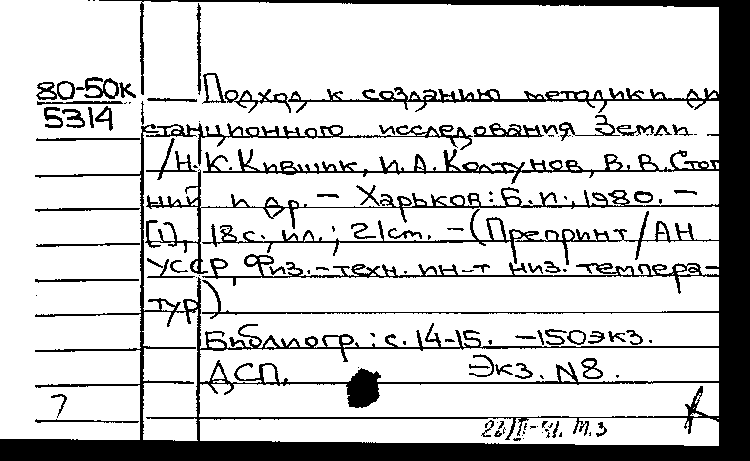 80-50к
5314
Подход к созданию методики ди
станционного исследования Земли
/Н. К. Кившик, И. А. Колтунов, В. В. Стог
ний и др. – Харьков: Б. и., 1980. –
[1], 18 с., ил.; 21 cm. – (Препринт / АН
УССР, Физ.-техн. ин-т низ. темпера-
тур).
Библиогр.: с. 14-15. – 150 экз.
ДСП. Экз. N8.
7